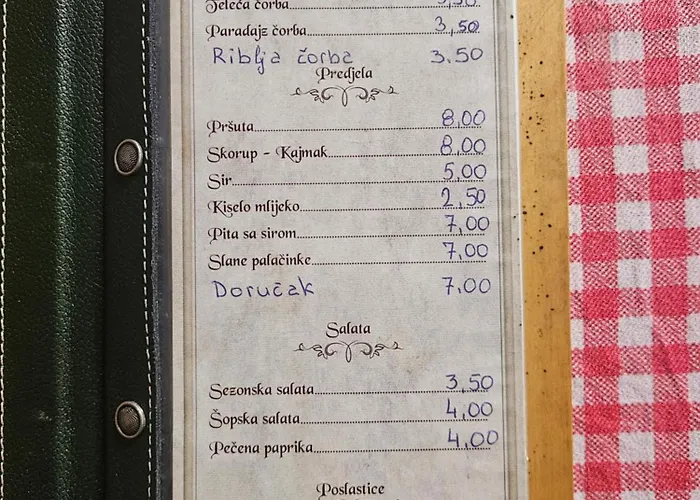 Teleća čorba 3,50
Paradajz čorba 3,50
Riblja čorba 3.50
Predjela
Pršuta 8,00
Skorup - Kajmak 8,00
Sir 5,00
Kiselo mlijeko 2,50
Pita sa sirom 7,00
Slane palačinke 7,00
Doručak 7.00
Salata
Sezonska salata 3,50
Šopska salata 4,00
Pečena paprika 4,00
Poslastice